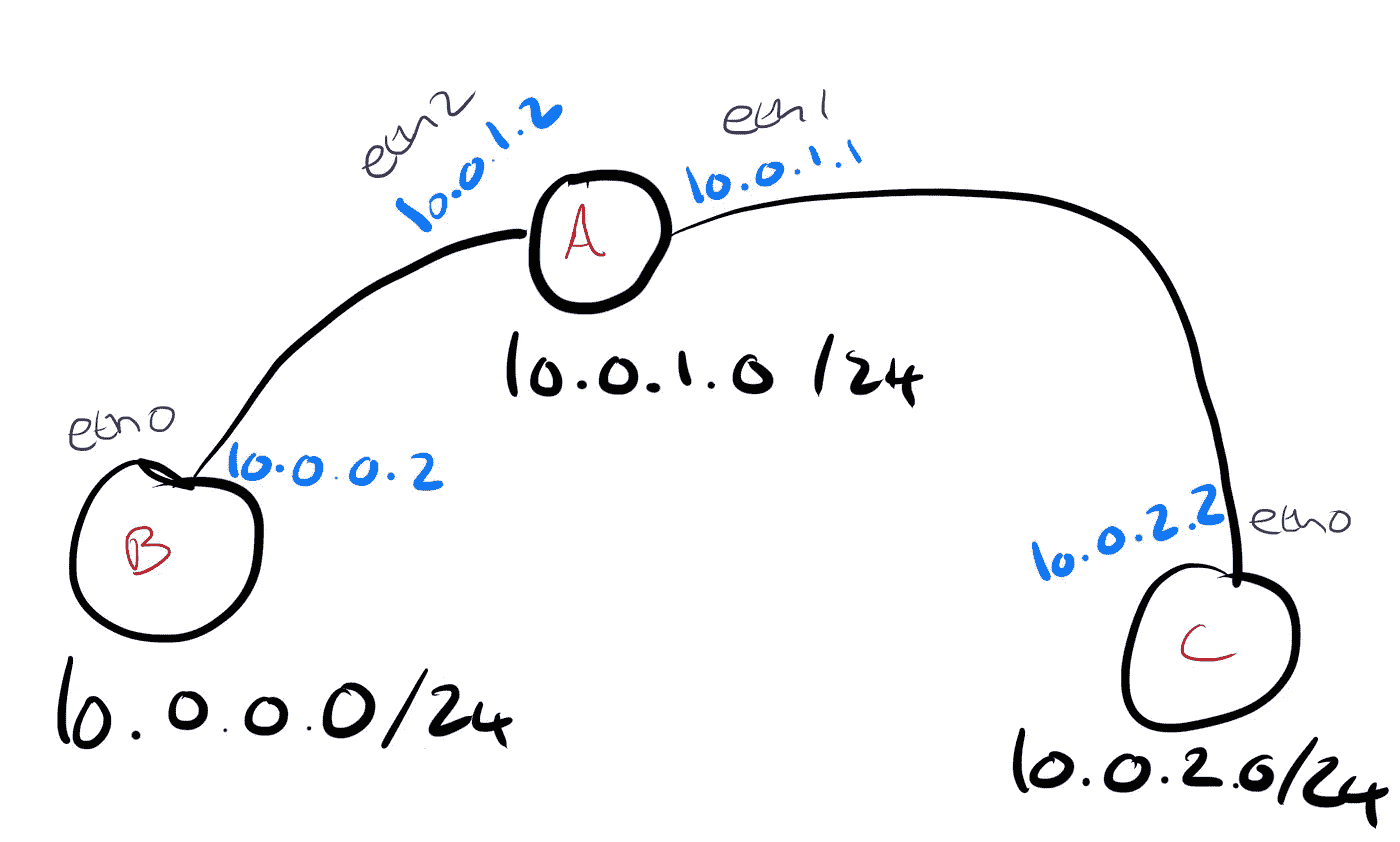 eth2
10.0.1.2
eth1
10.0.1.1
A
10.0.1.0/24
eth0
10.0.0.2
B
10.0.0.0/24
10.0.2.2
eth0
C
10.0.2.0/24